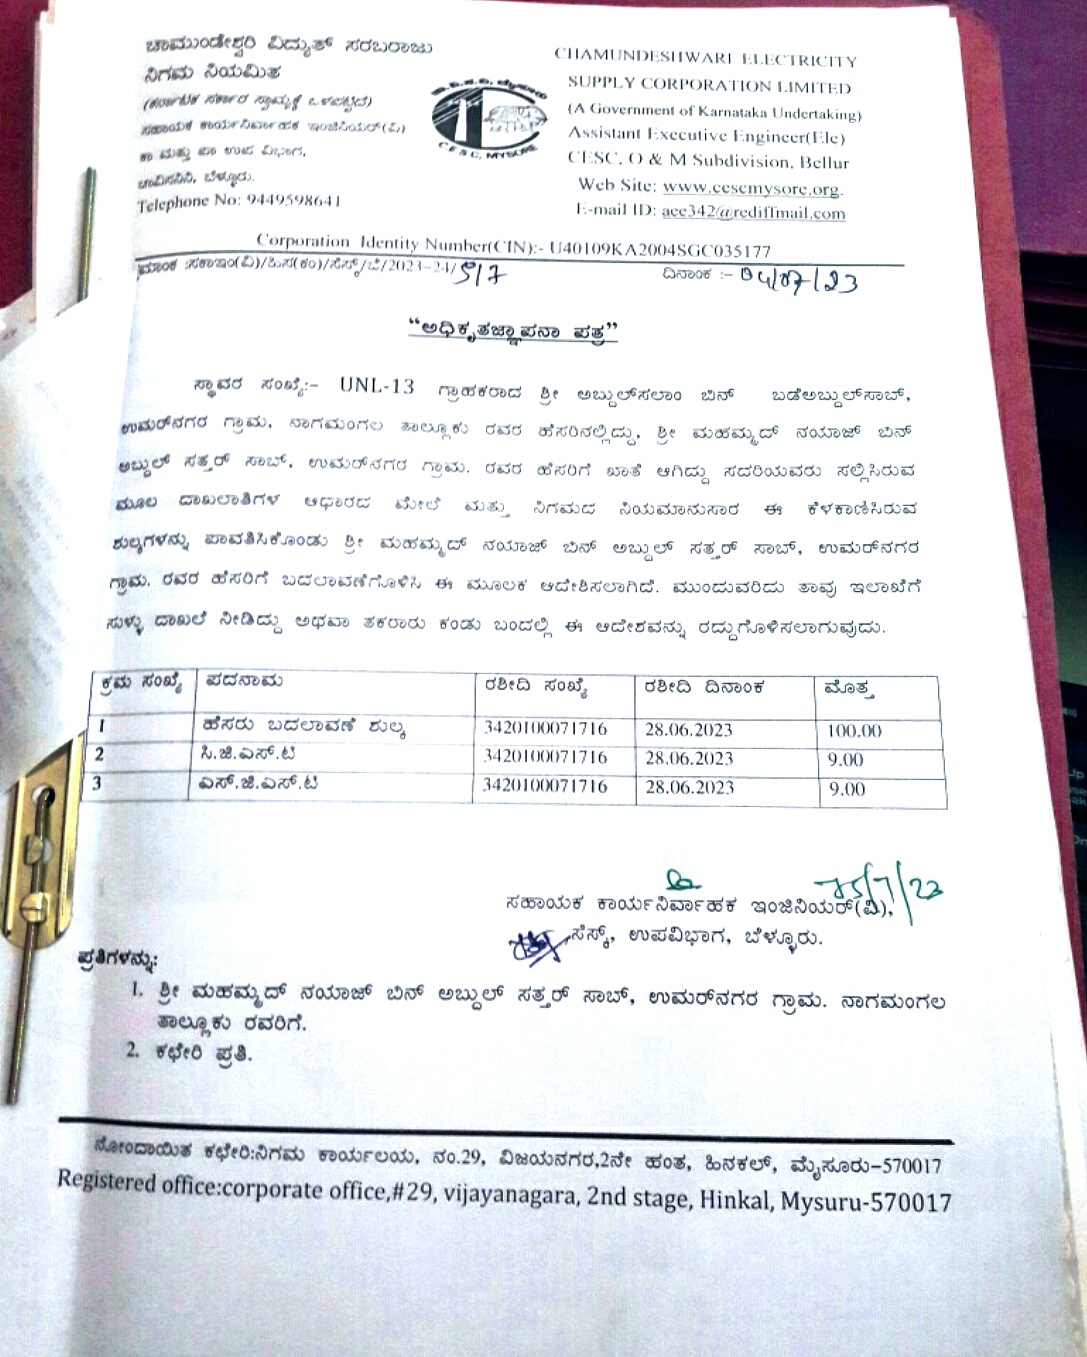 ಚಾಮುಂಡೇಶ್ವರಿ ವಿದ್ಯುತ್ ಸರಬರಾಜು
ನಿಗಮ ನಿಯಮಿತ
(ಕರ್ನಾಟಕ ಸರ್ಕಾರ ಸ್ವಾಮ್ಯಕ್ಕೆ ಒಳಪಟ್ಟಿದೆ)
ಸಹಾಯಕ ಕಾರ್ಯನಿರ್ವಾಹಕ ಇಂಜಿನಿಯರ್(ವಿ)
ಕಾ ಮತ್ತು ಪಾ ಉಪ ವಿಭಾಗ,
ಚಾವಿಸನಿನಿ, ಬೆಳ್ಳೂರು.
Telephone No: 9449598641
C.E.S.C, MYSORE
CHAMUNDESHWARI ELECTRICITY
SUPPLY CORPORATION LIMITED
(A Government of Karnataka Undertaking)
Assistant Executive Engineer(Ele)
CESC, O & M Subdivision, Bellur
Web Site: www.cescmysore.org.
E-mail ID: aee342@rediffmail.com
Corporation Identity Number(CIN):- U40109KA2004SGC035177
ಕ್ರಮಾಂಕ :ಸಕಾಇಂ(ವಿ)/ಹಿಸ(ಕಂ)/ಸೆಸ್ಕ್/ಬೆ/2023-24/ ದಿನಾಂಕ :- 04/07/23
“ಅಧಿಕೃತಜ್ಞಾಪನಾ ಪತ್ರ”
ಸ್ಥಾವರ ಸಂಖ್ಯೆ:- UNL-13 ಗ್ರಾಹಕರಾದ ಶ್ರೀ ಅಬ್ದುಲ್‌ಸಲಾಂ ಬಿನ್ ಬಡೆಅಬ್ದುಲ್‌ಸಾಬ್,
ಉಮರ್‌ನಗರ ಗ್ರಾಮ, ನಾಗಮಂಗಲ ತಾಲ್ಲೂಕು ರವರ ಹೆಸರಿನಲ್ಲಿದ್ದು, ಶ್ರೀ ಮಹಮ್ಮದ್ ನಯಾಜ್ ಬಿನ್
ಅಬ್ದುಲ್ ಸತ್ತರ್ ಸಾಬ್, ಉಮರ್‌ನಗರ ಗ್ರಾಮ. ರವರ ಹೆಸರಿಗೆ ಖಾತೆ ಆಗಿದ್ದು ಸದರಿಯವರು ಸಲ್ಲಿಸಿರುವ
ಮೂಲ ದಾಖಲಾತಿಗಳ ಆಧಾರದ ಮೇಲೆ ಮತ್ತು ನಿಗಮದ ನಿಯಮಾನುಸಾರ ಈ ಕೆಳಕಾಣಿಸಿರುವ
ಶುಲ್ಕಗಳನ್ನು ಪಾವತಿಸಿಕೊಂಡು ಶ್ರೀ ಮಹಮ್ಮದ್ ನಯಾಜ್ ಬಿನ್ ಅಬ್ದುಲ್ ಸತ್ತರ್ ಸಾಬ್, ಉಮರ್‌ನಗರ
ಗ್ರಾಮ. ರವರ ಹೆಸರಿಗೆ ಬದಲಾವಣೆಗೊಳಿಸಿ ಈ ಮೂಲಕ ಆದೇಶಿಸಲಾಗಿದೆ. ಮುಂದುವರಿದು ತಾವು ಇಲಾಖೆಗೆ
ಸುಳ್ಳು ದಾಖಲೆ ನೀಡಿದ್ದು ಅಥವಾ ತಕರಾರು ಕಂಡು ಬಂದಲ್ಲಿ ಈ ಆದೇಶವನ್ನು ರದ್ದುಗೊಳಿಸಲಾಗುವುದು.
ಕ್ರಮ ಸಂಖ್ಯೆ ಪದನಾಮ ರಶೀದಿ ಸಂಖ್ಯೆ ರಶೀದಿ ದಿನಾಂಕ ಮೊತ್ತ
1 ಹೆಸರು ಬದಲಾವಣೆ ಶುಲ್ಕ 3420100071716 28.06.2023 100.00
2 ಸಿ.ಜಿ.ಎಸ್.ಟಿ 3420100071716 28.06.2023 9.00
3 ಎಸ್.ಜಿ.ಎಸ್.ಟಿ 3420100071716 28.06.2023 9.00
ಸಹಾಯಕ ಕಾರ್ಯನಿರ್ವಾಹಕ ಇಂಜಿನಿಯರ್(ವಿ),
ಸೆಸ್ಕ್, ಉಪವಿಭಾಗ, ಬೆಳ್ಳೂರು.
ಪ್ರತಿಗಳನ್ನು:
1. ಶ್ರೀ ಮಹಮ್ಮದ್ ನಯಾಜ್ ಬಿನ್ ಅಬ್ದುಲ್ ಸತ್ತರ್ ಸಾಬ್, ಉಮರ್‌ನಗರ ಗ್ರಾಮ. ನಾಗಮಂಗಲ
ತಾಲ್ಲೂಕು ರವರಿಗೆ.
2. ಕಛೇರಿ ಪ್ರತಿ.
ನೋಂದಾಯಿತ ಕಛೇರಿ:ನಿಗಮ ಕಾರ್ಯಲಯ, ನಂ.29, ವಿಜಯನಗರ,2ನೇ ಹಂತ, ಹಿನಕಲ್, ಮೈಸೂರು-570017
Registered office:corporate office,#29, vijayanagara, 2nd stage, Hinkal, Mysuru-570017